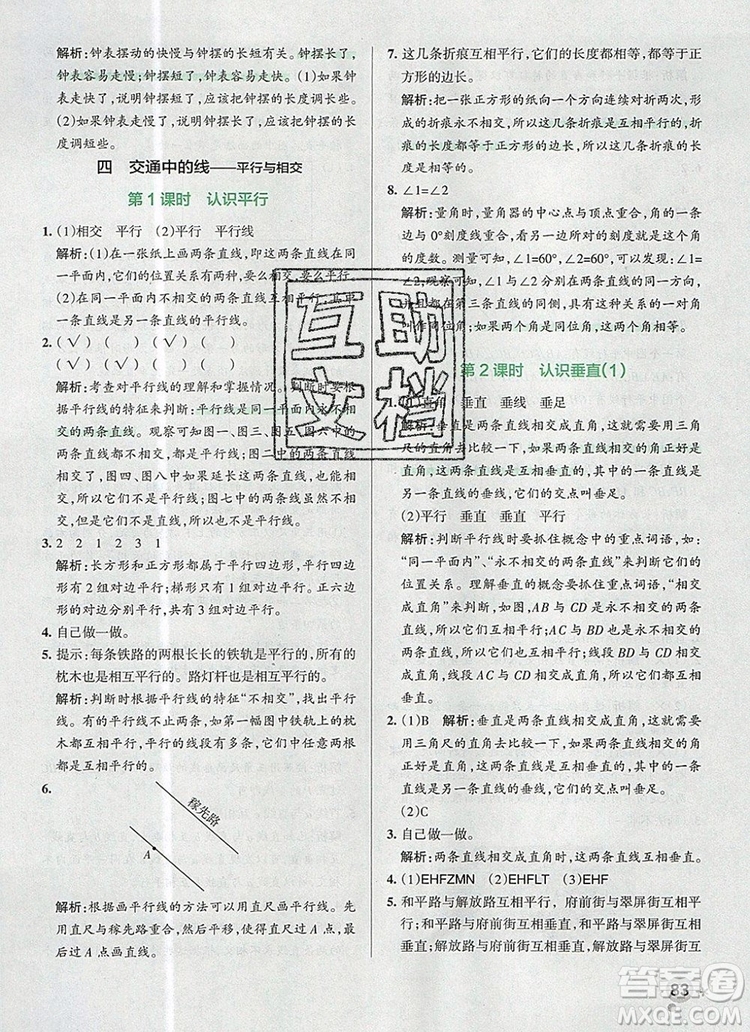 解析:钟表摆动的快慢与钟摆的长短有关。钟摆长了,
钟表容易走慢;钟摆短了,钟表容易走快。(1)如果钟
表走快了,说明钟摆短了,应该把钟摆的长度调长些。
(2)如果钟表走慢了,说明钟摆长了,应该把钟摆的长
度调短些。
四 交通中的线——平行与相交
第1课时 认识平行
1. (1)相交 平行 (2)平行 平行线
解析:(1)在一张纸上画两条直线,即这两条直线在同
一平面内,它们的位置关系有两种:要么相交,要么平行。
(2)在同一平面内不相交的两条直线互相平行,其中
一条直线是另一条直线的平行线。
2. (√) (√) ( ) ( )
(√) ( ) ( ) (√)
解析:考查对平行线的理解和掌握情况。
根据平行线的特征来判断:平行线是同一平面内不相
交的两条直线。观察可知:图一、图二、图五、图八是平
行线;图三、图四、图六中如果延长这两条直线,会相
交,因此图三、图四、图六不是平行线;图七中的线虽然不相
交,但因为不是直线,所以不是平行线。
3. 2 2 1 2 3 1
解析:长方形和正方形都属于平行四边形,平行四边
形有2组对边平行;梯形只有1组对边平行。正六边
形的对边分别平行,共有3组对边平行。
4. 自己做一做。
5. 提示:每条铁路的两根长长的铁轨是平行的,所有的
枕木也是相互平行的。路灯杆也是相互平行的。
解析:判断时根据平行线的特征“不相交”,找到平行
线。平行线不止两条,如第一幅图中铁轨上的枕
木都互相平行,平行线段有多条,它们中任意两根都
是相互平行的。
6.
稼先路
A
解析:根据画平行线的方法可以用直尺画平行线。先
用直尺的一边与稼先路重合,平移,使得直尺过A点,
最后过A点画直线。
7. 这几条折痕互相平行,它们的长度都相等,都等于正
方形的边长。
解析:把一张正方形的纸向一个方向连续对折两次,形
成的折痕永不相交,所以这几条折痕是互相平行的,折
痕的长度都等于正方形的边长,所以它们的长度相等。
8. ∠1=∠2
解析:量角时,量角器的中心点与顶点重合,角的一条
边与0°刻度线重合,看另一条边所对的刻度就是这个角
的度数。测量∠1=60°,∠2=60°,所以∠1=
∠2。观察可知:∠1与∠2分别在两条直线的同一方向,
并且在第三条直线的同侧,具有这样位置关系的一对角
称为同位角,如果两个角是同位角,那么这两个角相等。
第2课时 认识垂直(1)
1. (1)直角 垂直 垂线 垂足
解析:垂直是两条直线相交成直角,这就需要用三角尺
的直角去比较一下,如果两条直线相交的角正好是
直角,这两条直线就互相垂直,其中一条直线是
另一条直线的垂线,它们的交点叫垂足。
(2)平行 垂直 垂直 平行
解析:判断平行线时要抓住概念中的重点词语,如:
“同一平面内”、“永不相交的两条直线”来判断它们的
位置关系。理解垂直的概念要抓住重点词语,“相交
成直角”来判断,例如,AB与CD是永不相交的两条
直线,所以它们互相平行;AC与BD也是永不相交的
两条直线,所以它们互相平行;AB与BD相交成直
角,AC与CD也是相交成直角,所以它们分别互相
垂直。
2. (1)B 解析:垂直是两条直线相交成直角,这就需要
用三角尺的直角去比较一下,如果两条直线相交的角
正好是直角,那么这两条直线就互相垂直。
(2)C
3. 自己做一做。
解析:两条直线相交成直角,这两条直线就互相垂直。
4. (1)EHFZMN (2)EHFLT (3)EHF
5. 和平路与解放路互相平行,府前街与翠屏街互相平
行;和平路与府前街互相垂直,和平路与翠屏街互相垂
直;解放路与府前街互相垂直,解放路与翠屏街互
互助文档
83
答案圈
MXQE.COM